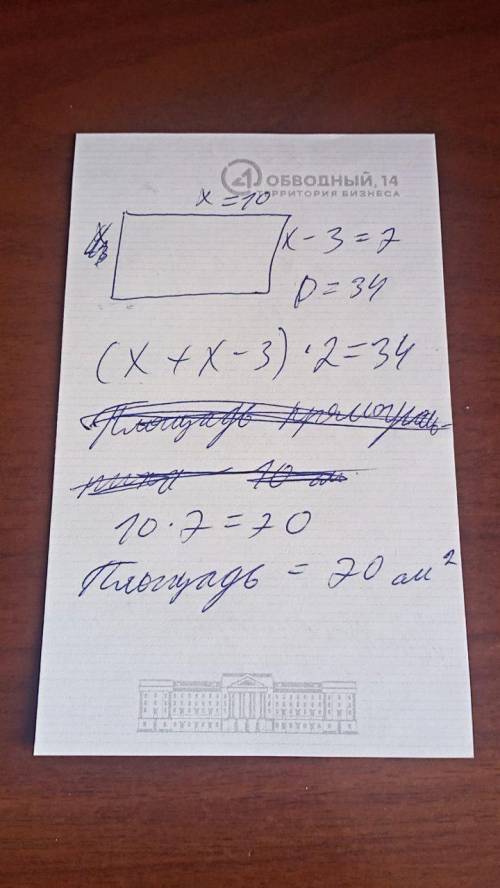 ОБВОДНЫЙ, 14
ТЕРРИТОРИЯ БИЗНЕСА
x = 10
x - 3 = 7
P = 34
(x + x - 3) · 2 = 34
Площадь прямоуголь
ника 70 см
10 · 7 = 70
Площадь = 70 см²